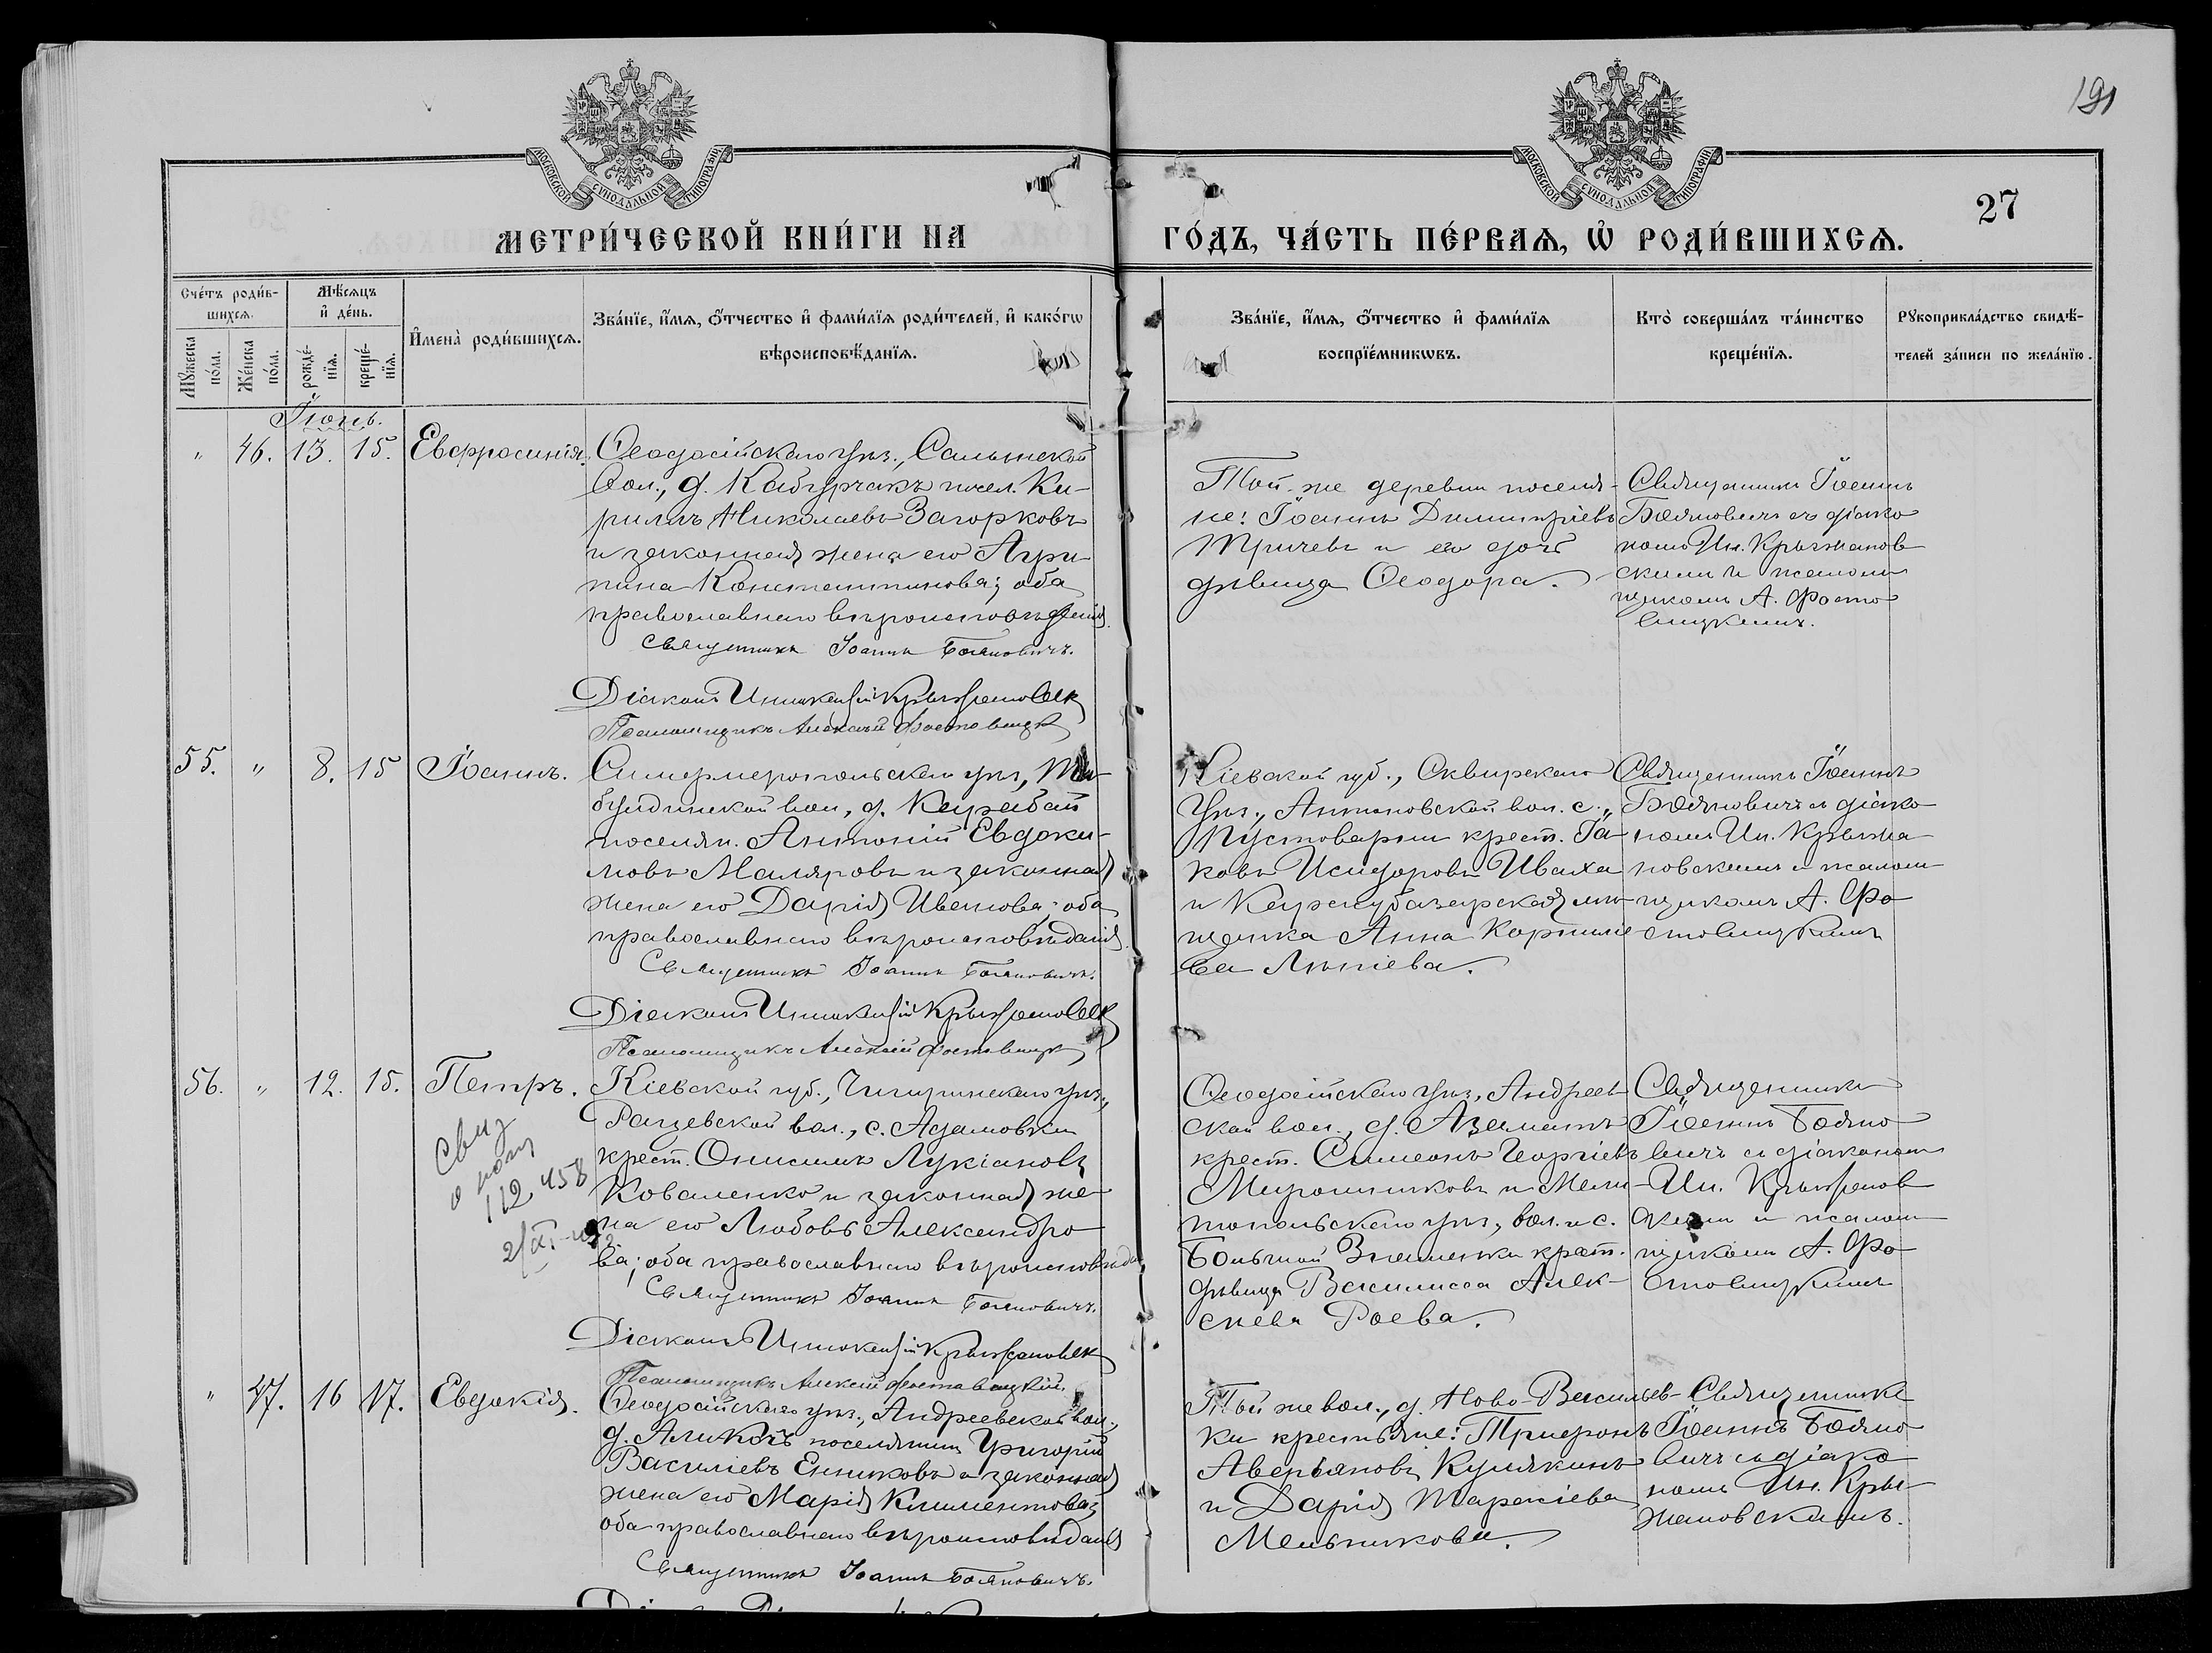 191
МОСКОВСКОЙ СѴНОДАЛЬНОЙ ТИПОГРАФІИ
МОСКОВСКОЙ СѴНОДАЛЬНОЙ ТИПОГРАФІИ
27
МЕТРИ́ЧЕСКОЙ КНИ́ГИ НА
ГО́ДЪ, ЧА́СТЬ ПЕ́РВАѦ, Ѡ҆ РОДИ́ВШИХСѦ.
Сче́тъ роди́в-
шихсѧ.
Мѣ́сѧцъ
и҆ де́нь.
Мꙋ́жеска по́ла.
Же́нска по́ла.
рожде́-
нїѧ.
креще́-
нїѧ.
И҆мена̀ роди́вшихсѧ.
Зва́нїе, и҆́мѧ, ѻ҆́тчество и҆ фами́лїѧ роди́телей, и҆ како́гѡ
вѣроисповѣ́данїѧ.
Зва́нїе, и҆́мѧ, ѻ҆́тчество и҆ фами́лїѧ
воспрїе́мникѡвъ.
Кто̀ соверша́лъ та́инство
креще́нїѧ.
Рꙋкоприкла́дство свидѣ́-
телей за́писи по жела́нїю.
Іюнь.
" 46. 13. 15. Евфросинія.
Ѳеодосійскаго уѣз., Салынской
вол., д. Кабурчакъ посел. Ки-
риллъ Николаевъ Загорковъ
и законная жена его Агри-
пина Константинова; оба
православнаго вѣроисповѣданія.
Священникъ Іоаннъ Бояновичъ.
Діаконъ Иннокентій Крыжановск
Псаломщикъ Алексій Фостовицк
Той-же деревни поселя-
не: Іоаннъ Димитріевъ
Тричевъ и его дочь
дѣвица Ѳеодора.
Священникъ Іоаннъ
Бояновичъ съ діако
номъ Ин. Крыжанов
скимъ и псалом
щикомъ А. Фосто
вицкимъ.
55. " 8. 15 Іоаннъ.
Симферопольскаго уѣз,
булдинской вол., д.
поселян. Антоній Евдоки-
мовъ Маляровъ и законная
жена его Дарія Ивановна; оба
православнаго вѣроисповѣданія.
Священникъ Іоаннъ Бояновичъ.
Діаконъ Иннокентій Крыжановск
Псаломщикъ Алексій Фостовицк
Кіевской губ., Сквирскаго
уѣз., Антоновской вол. с.,
Пустоварни крест. Іа-
ковъ Исидоровъ Иваха
и Карасубазарская мѣ-
щанка Анна Корниліе
ва
Священникъ Іоаннъ
Бояновичъ съ діако
номъ Ин. Крыжа
новскимъ и псалом
щикомъ А. Фо
стовицкимъ
56. " 12. 15. Петръ.
112 458
Кіевской губ., Чигиринскаго уѣз.,
Рацевской вол., с. Адамовки
крест. Онисимъ Лукіановъ
Коваленко и законная же-
на его Любовь Александро
ва; оба православнаго вѣроисповѣда
Священникъ Іоаннъ Бояновичъ.
Діаконъ Иннокентій Крыжановск
Псаломщикъ Алексій Фостовицкій.
Ѳеодосійскаго уѣз., Андреев
ской вол., д. Азаматъ
крест. Симеонъ Георгіевъ
Мирошниковъ и Мели-
топольскаго уѣз., вол. и с.
Большой Знаменки крест.
дѣвица Василисса Алек-
сѣева Роева.
Священникъ
Іоаннъ Бояно
вичъ съ діакономъ
Ин. Крыжанов
скимъ и псалом
щикомъ А. Фо
стовицкимъ
" 47. 16 17. Евдокія.
Ѳеодосійскаго уѣз., Андреевской вол.,
д. Аликечъ поселянинъ Григорій
Василіевъ Енниковъ и законная
жена его Марія Климентова;
оба православнаго вѣроисповѣданія
Священникъ Іоаннъ Бояновичъ.
Той же вол., д. Ново-Васильев-
ки крестьяне: Трифонъ
Аверьяновъ Кулякинъ
и Дарія Тарасіева
Мельникова.
Священникъ
Іоаннъ Бояно
вичъ съ діако
номъ Ин. Кры-
жановскимъ.